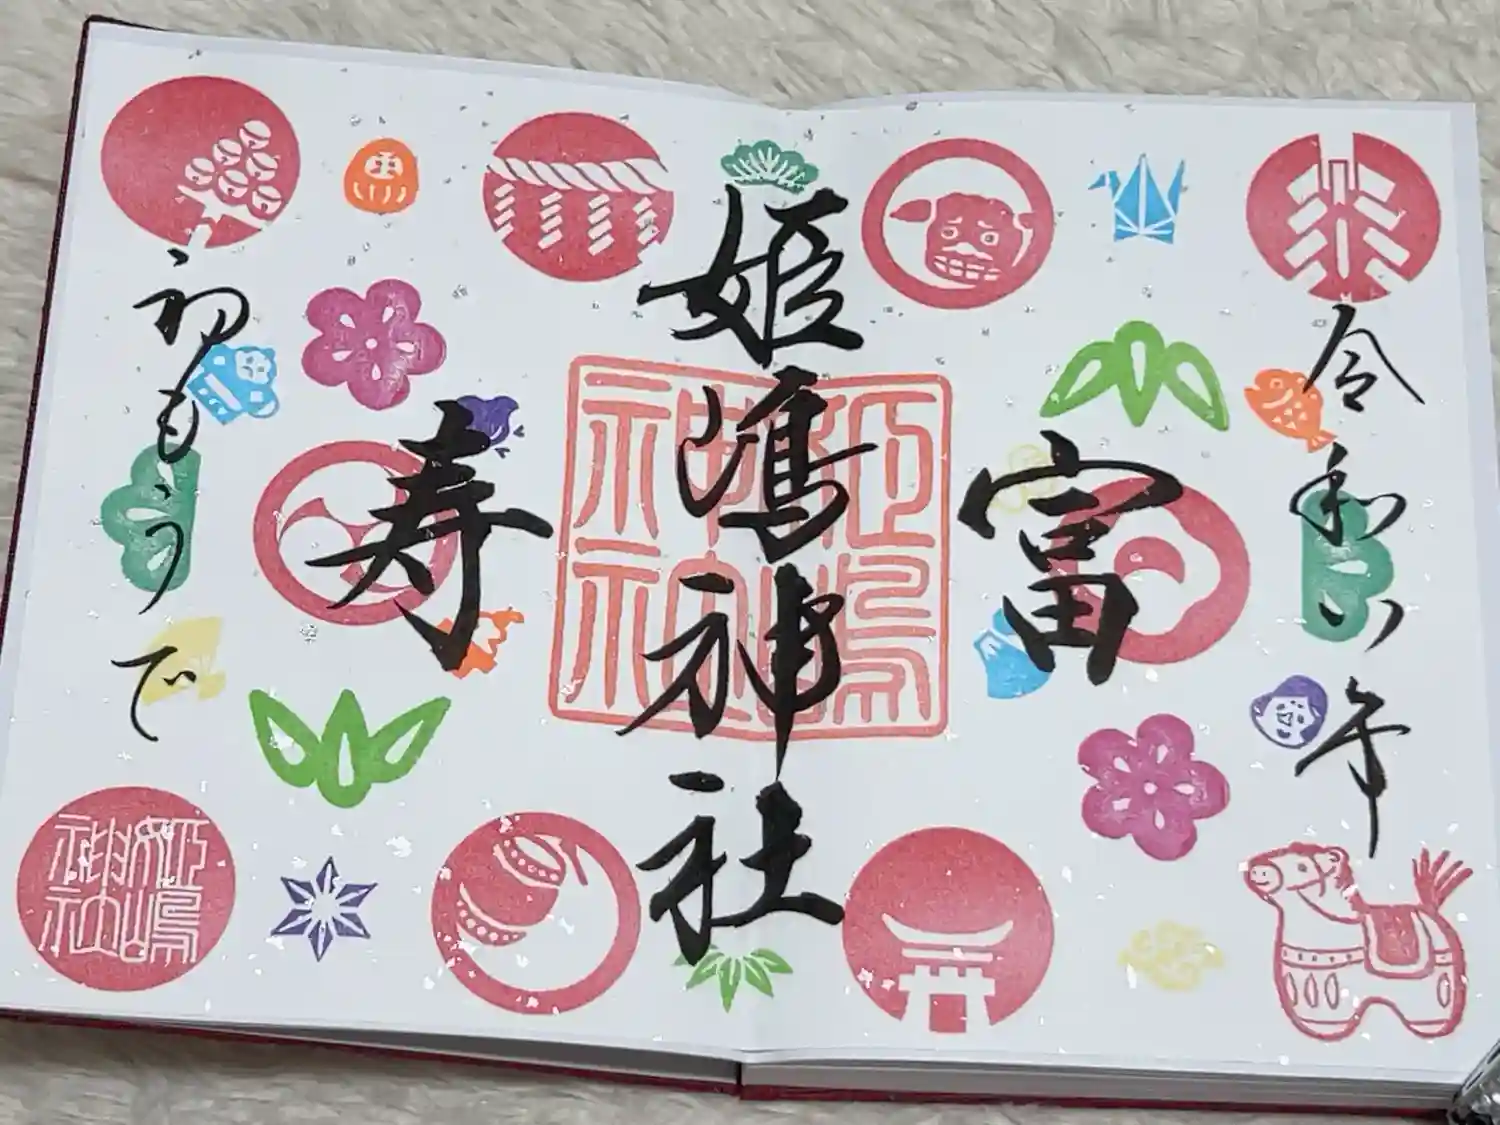 令和八年
富
姫嶋神社
寿
初もうで
姫嶋神社
姫嶋神社